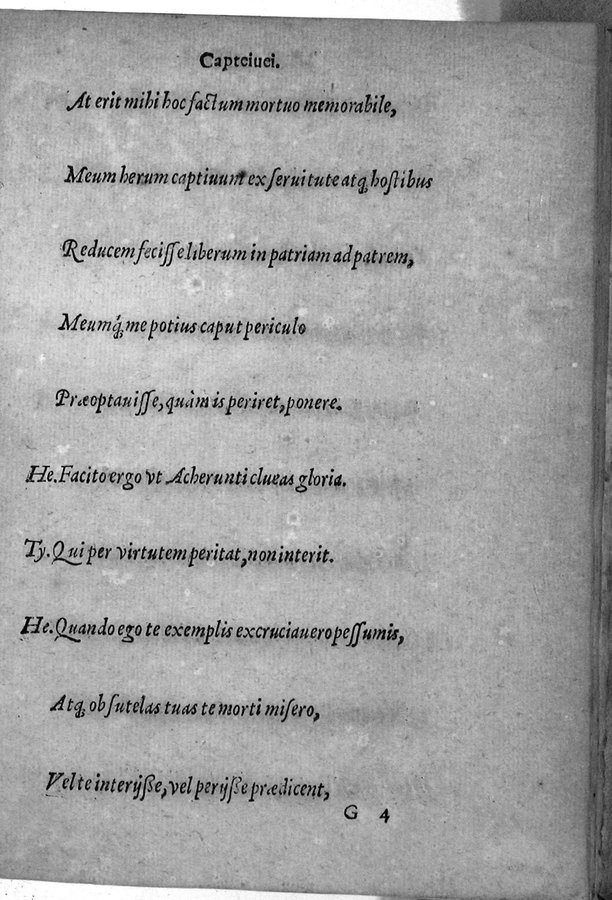 Capteiuei.
At erit mihi hoc factum mortuo memorabile,
Meum herum captiuum ex seruitute atq; hostibus
Reducem fecisse liberum in patriam ad patrem,
Meumq́; me potius caput periculo
Præoptauisse, quàm is periret, ponere.
He. Facito ergo vt Acherunti clueas gloria.
Ty. Qui per virtutem peritat, non interit.
He. Quando ego te exemplis excruciauero pessumis,
Atq; ob sutelas tuas te morti misero,
Vel te interijsse, vel perijsse prædicent,
G 4